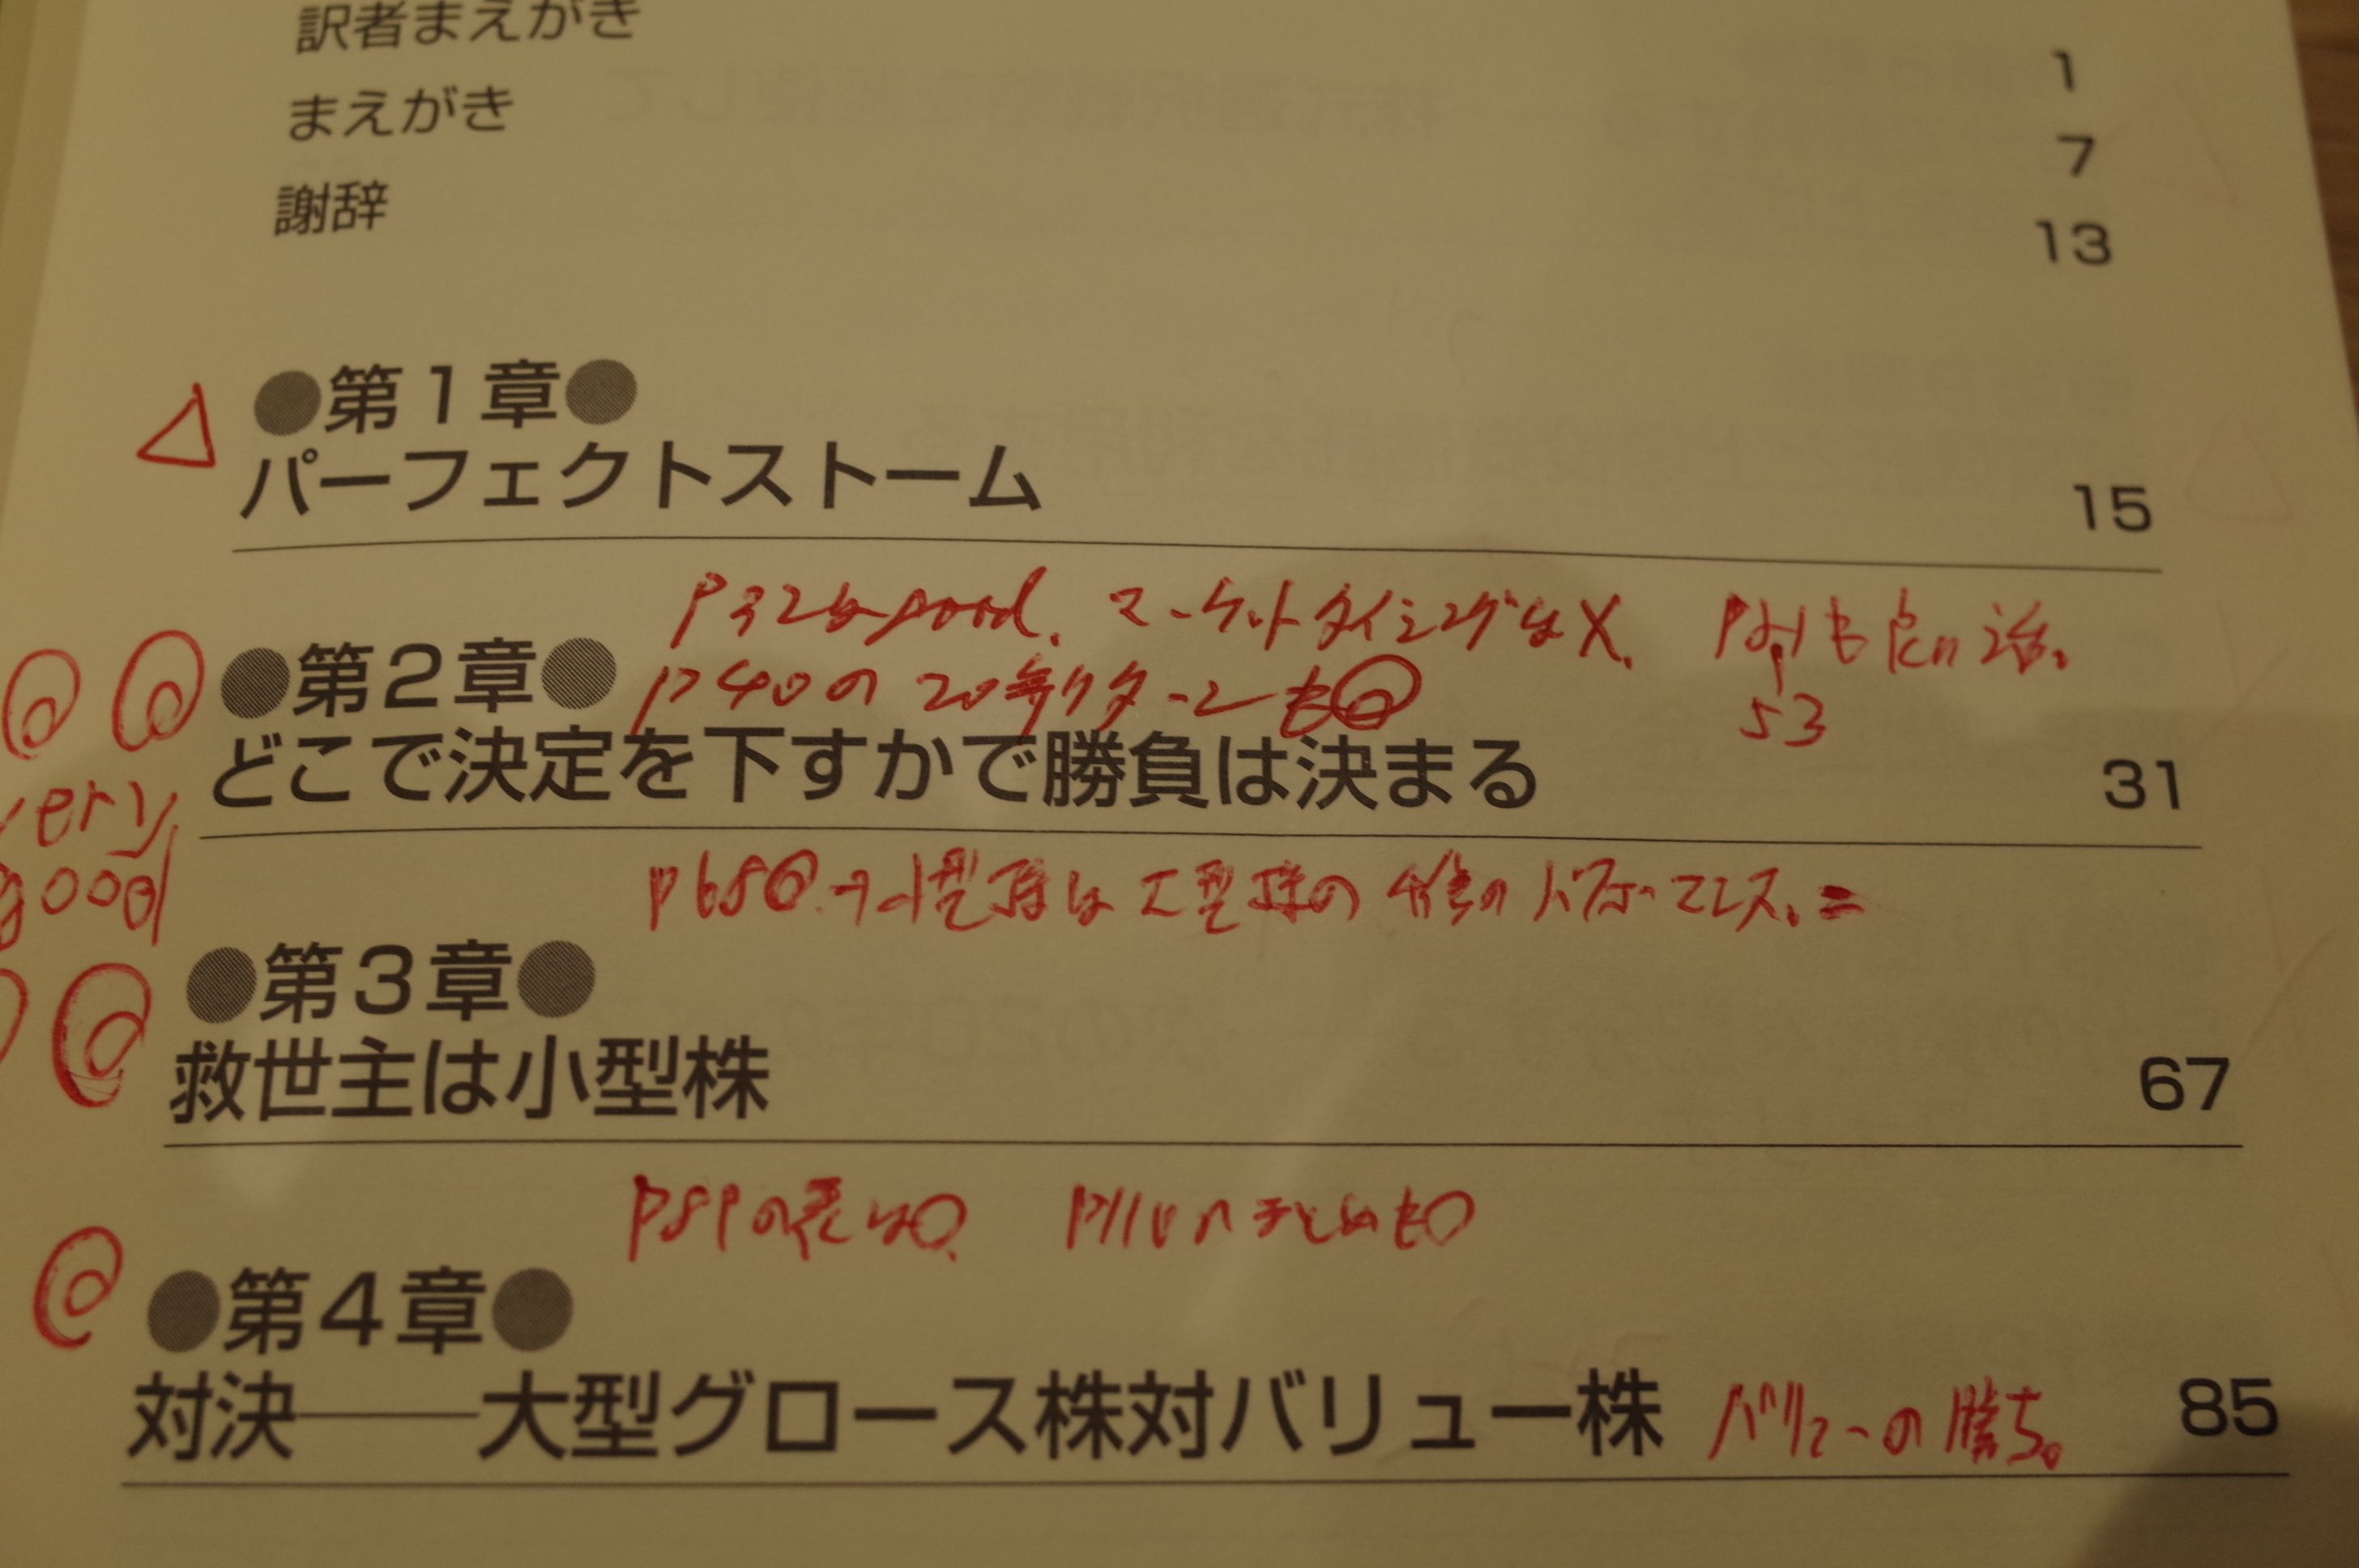 訳者まえがき 1
まえがき 7
謝辞 13
△ ●第1章●
パーフェクトストーム 15
P32はgood. マーケットタイミングはX. も良い
P40の20年リターンも◎ 53
◎ ◎ ●第2章●
どこで決定を下すかで勝負は決まる 31
very
good
P68◎→小型株は大型株の パフォーマンス。=
◎ ●第3章●
救世主は小型株 67
P89の表は○. P110のまとめも○
◎ ●第4章●
対決――大型グロース株対バリュー株 バリューの勝ち。 85